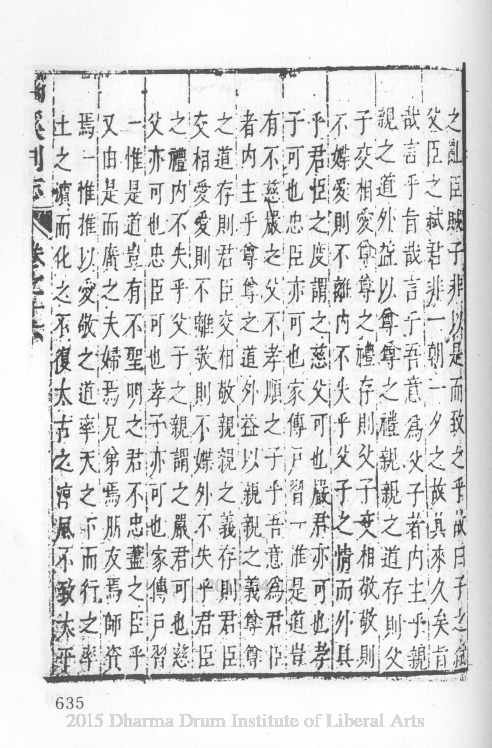 之亂臣賊子非以是而致之乎故曰子之弑
父臣之弑君非一朝一夕之故其來久矣旨
哉言乎旨哉言乎吾意為父子者內主乎親
親之道外益以尊尊之禮親親之道存則父
子交相愛尊尊之禮存則父子交相敬敬則
不媟愛則不離內不失乎父子之情而外具
乎君臣之度謂之慈父可也嚴君亦可也孝
子可也忠臣亦可也家傳戶習一惟是道豈
有不慈嚴之父不孝順之子乎吾意為君臣
者內主乎尊尊之道外益以親親之義尊尊
之道存則君臣交相敬親親之義存則君臣
交相愛愛則不離敬則不媟外不失乎君臣
之禮內不失乎父子之親謂之嚴君可也慈
父亦可也忠臣可也孝子亦可也家傳戶習
一惟是道豈有不聖明之君不忠盡之臣乎
又由是而廣之夫婦焉兄弟焉朋友焉師資
焉一惟推以愛敬之道率天之下而行之率
土之濱而化之不復太古之淳風不致太平
635
2015 Dharma Drum Institute of Liberal Arts